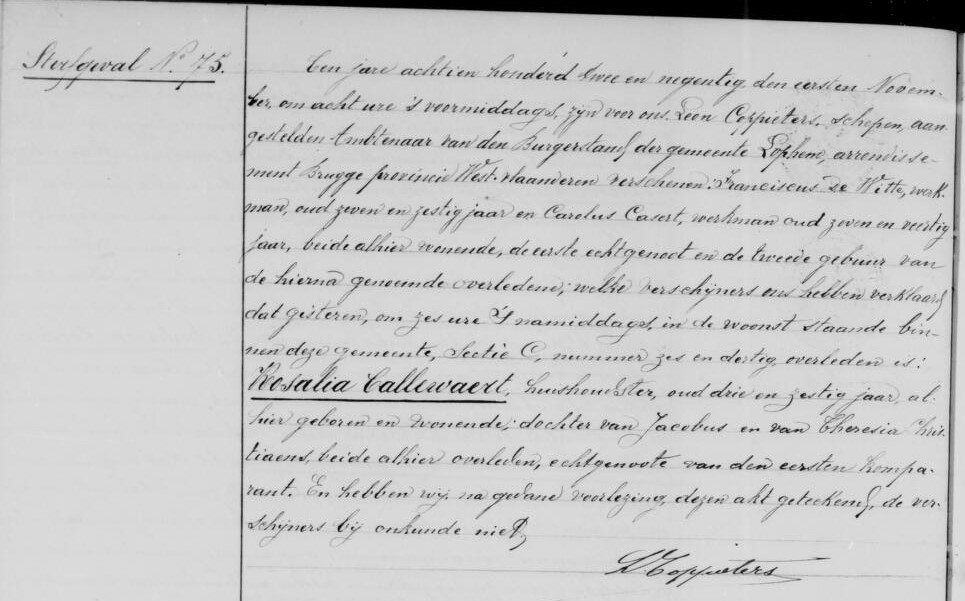 Sterfgeval N.º 75.
Ten jare achtien honderd twee en negentig den eersten Novem-
ber, om acht ure 's voormiddags, zijn voor ons Leon Coppieters schepen, aan
gestelden Ambtenaar van den Burgerstand der gemeente Lophem, arrondisse-
ment Brugge provincie West-vlaanderen verschenen: Franciscus De Witte, werk-
man, oud zeven en zestig jaar en Carolus Casert, werkman oud zeven en veertig
jaar, beide alhier wonende, de eerste echtgenoot en de tweede gebuur van
de hierna genoemde overledene; welke verschijners ons hebben verklaard
dat gisteren, om zes ure 's namiddags, in de woonst staande bin-
nen deze gemeente, Sectie C, nummer zes en dertig, overleden is:
Rosalia Callewaert, huishoudster, oud drie en zestig jaar, al-
hier geboren en wonende; dochter van Jacobus en van Theresia Kris-
tiaens, beide alhier overleden, echtgenoote van den eersten kompa-
rant. En hebben wij, na gedane voorlezing, dezen akt geteekend, de ver-
schijners bij onkunde niet.
L Coppieters